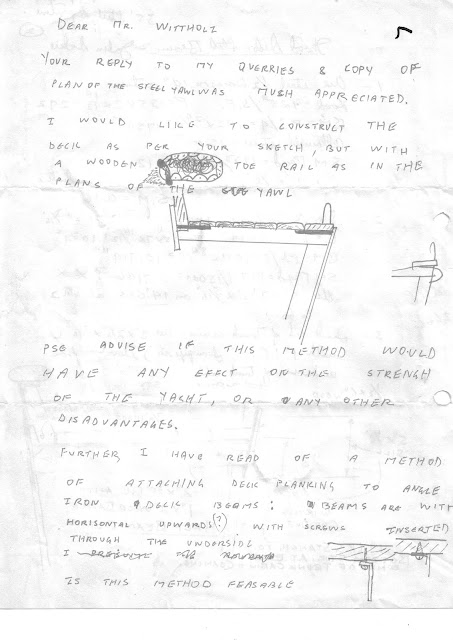 DEAR MR. WITTHOLZ
YOUR REPLY TO MY QUERRIES & COPY OF
PLAN OF THE STEEL YAWL WAS MUSH APPRECIATED.
I WOULD LIKE TO CONSTRUCT THE
DECK AS PER YOUR SKETCH, BUT WITH
A WOODEN TOE RAIL AS IN THE
PLANS OF THE YAWL
PSE ADVISE IF THIS METHOD WOULD
HAVE ANY EFFECT ON THE STRENGH
OF THE YACHT, OR ANY OTHER
DISADVANTAGES.
FURTHER I HAVE READ OF A METHOD
OF ATTACHING DECK PLANKING TO ANGLE
IRON DECK BEAMS: BEAMS ARE WITH
HORISONTAL UPWARDS(?) WITH SCREWS INSERTED
THROUGH THE UNDORSIDE
I
IS THIS METHOD FEASABLE